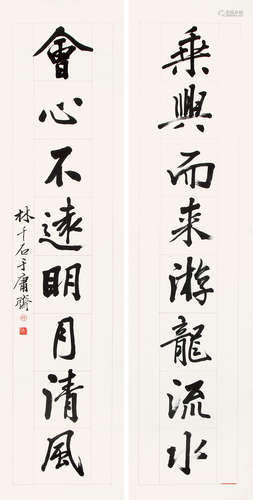 乘興而来游龍流水
會心不遠明月清風
林千石于庸齋